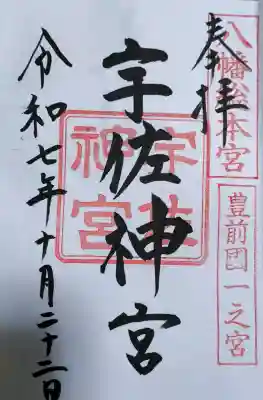 八幡総本宮
豊前国一之宮
奉拝
宇佐神宮
宇佐
神宮
令和七年十月二十二日